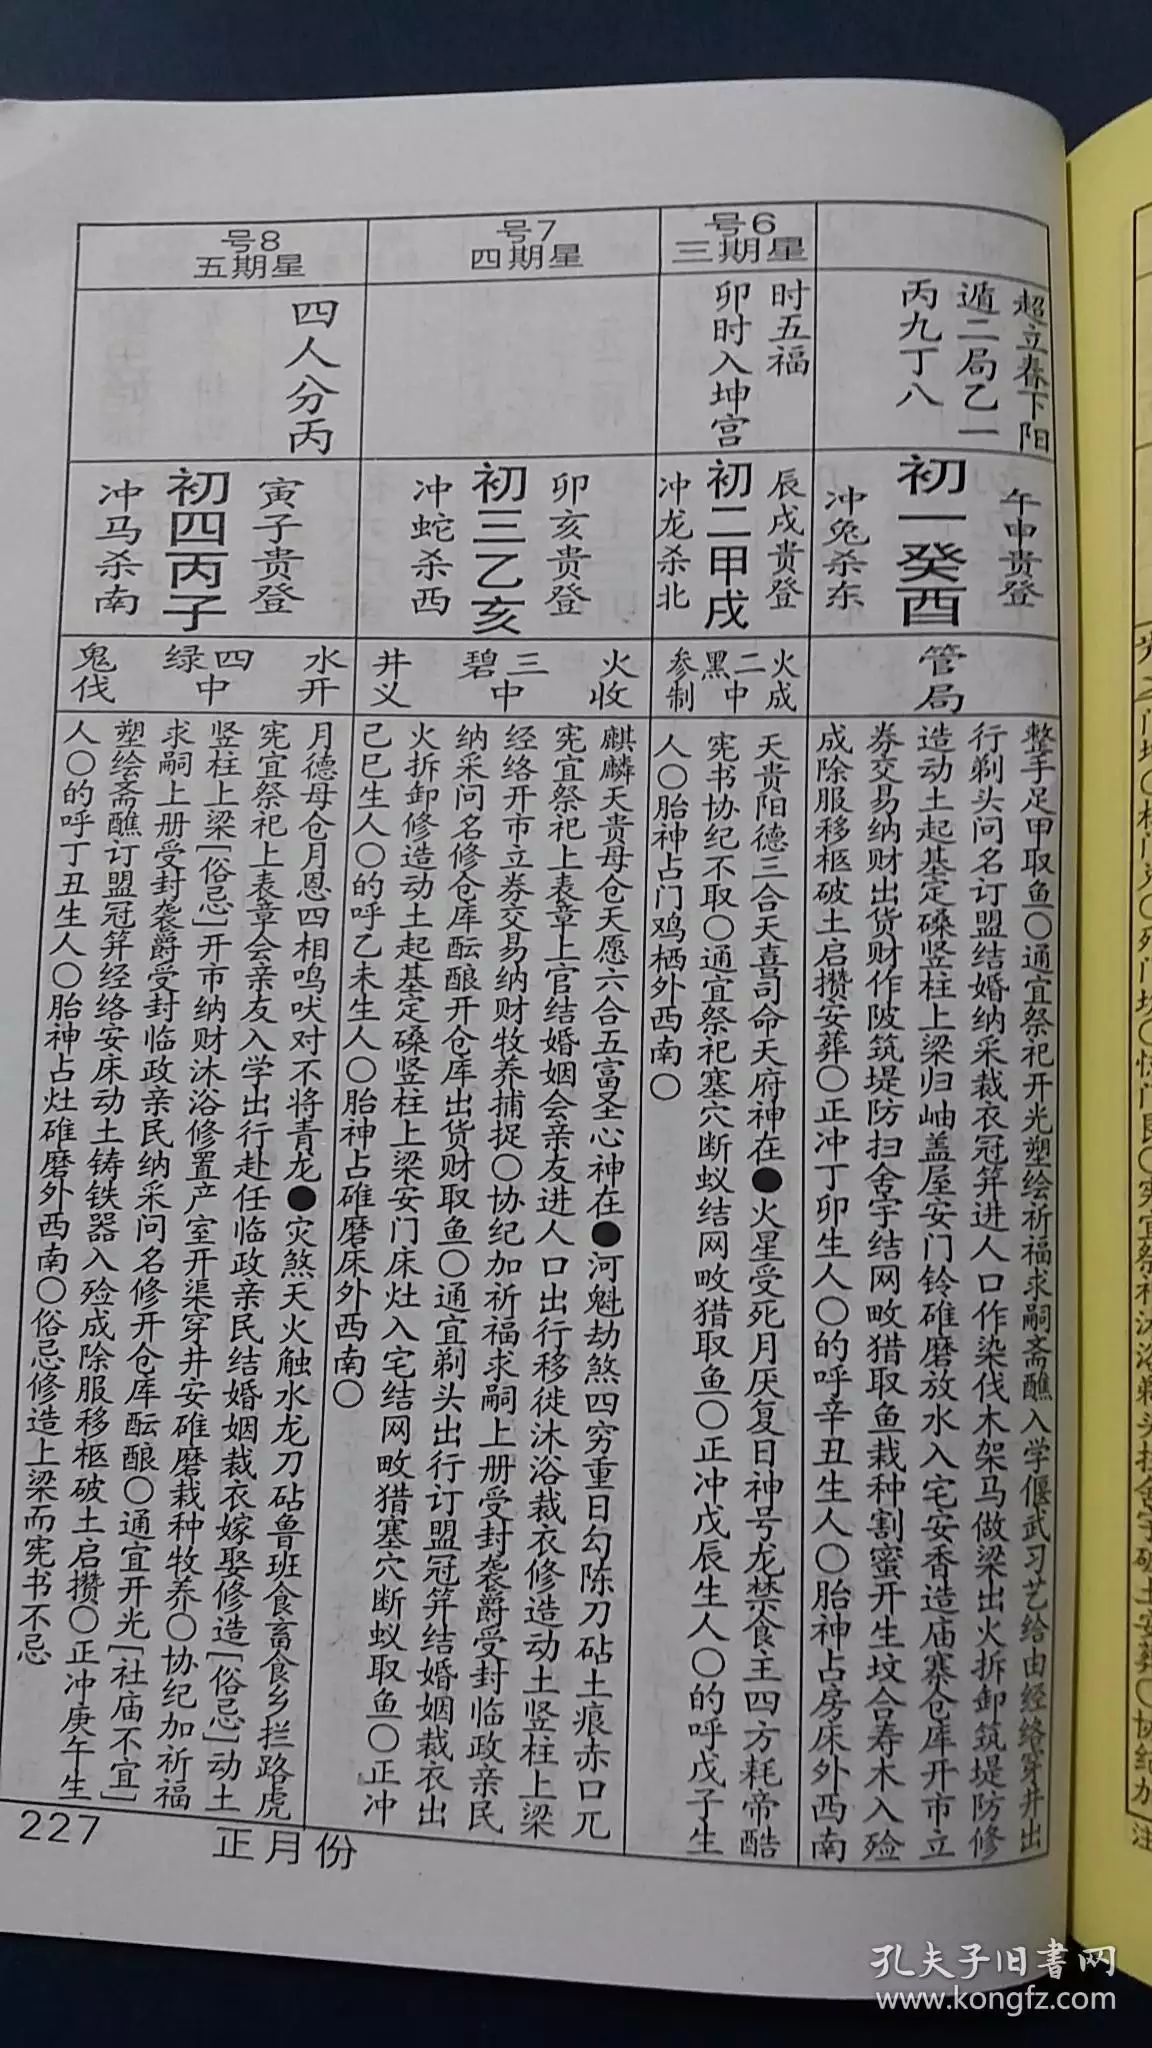 超立春下阳
遁二局乙一
丙九丁八
午申贵登
初一癸酉
冲兔杀东
管局
整手足甲取鱼○通宜祭祀开光塑绘祈福求嗣斋醮入学偃武习艺给由经络穿井出
行剃头问名订盟结婚纳采裁衣冠笄进人口作染伐木架马做梁出火拆卸筑堤防修
造动土起基定磉竖柱上梁归岫盖屋安门铃碓磨放水入宅安香造庙寨仓库开市立
券交易纳财出货财作陂筑堤防扫舍宇结网畋猎取鱼栽种割蜜开生坟合寿木入殓
成除服移柩破土启攒安葬○正冲丁卯生人○的呼辛丑生人○胎神占房床外西南
号6
三期星
时五福
卯时入坤宫
辰戌贵登
初二甲戌
冲龙杀北
火成
二中
黑
参制
天贵阳德三合天喜司命天府神在●火星受死月厌复日神号龙禁食主四方耗帝酷
宪书协纪不取○通宜祭祀塞穴断蚁结网畋猎取鱼○正冲戊辰生人○的呼戊子生
人○胎神占门鸡栖外西南○
号7
四期星
卯亥贵登
初三乙亥
冲蛇杀西
火收
三中
碧
井义
麒麟天贵母仓天愿六合五富圣心神在●河魁劫煞四穷重日勾陈刀砧土痕赤口兀
宪宜祭祀上表章上官结婚姻会亲友进人口出行移徙沐浴裁衣修造动土竖柱上梁
经络开市立券交易纳财牧养捕捉○协纪加祈福求嗣上册受封袭爵受封临政亲民
纳采问名修仓库酝酿开仓库出货财取鱼○通宜剃头出行订盟冠笄结婚姻裁衣出
火拆卸修造动土起基定磉竖柱上梁安门床灶入宅结网畋猎塞穴断蚁取鱼○正冲
己巳生人○的呼乙未生人○胎神占碓磨床外西南○
号8
五期星
四人分丙
寅子贵登
初四丙子
冲马杀南
水开
四中
绿
鬼伐
月德母仓月恩四相鸣吠对不将青龙●灾煞天火触水龙刀砧鲁班食畜食乡拦路虎
宪宜祭祀上表章会亲友入学出行赴任临政亲民结婚姻裁衣嫁娶修造[俗忌]动土
竖柱上梁[俗忌]开市纳财沐浴修置产室开渠穿井安碓磨栽种牧养○协纪加祈福
求嗣上册受封袭爵受封临政亲民纳采问名修开仓库酝酿○通宜开光[社庙不宜]
塑绘斋醮订盟冠笄经络安床动土铸铁器入殓成除服移柩破土启攒○正冲庚午生
人○的呼丁丑生人○胎神占灶碓磨外西南○俗忌修造上梁而宪书不忌
227
正月份
孔夫子旧书网
www.kongfz.com